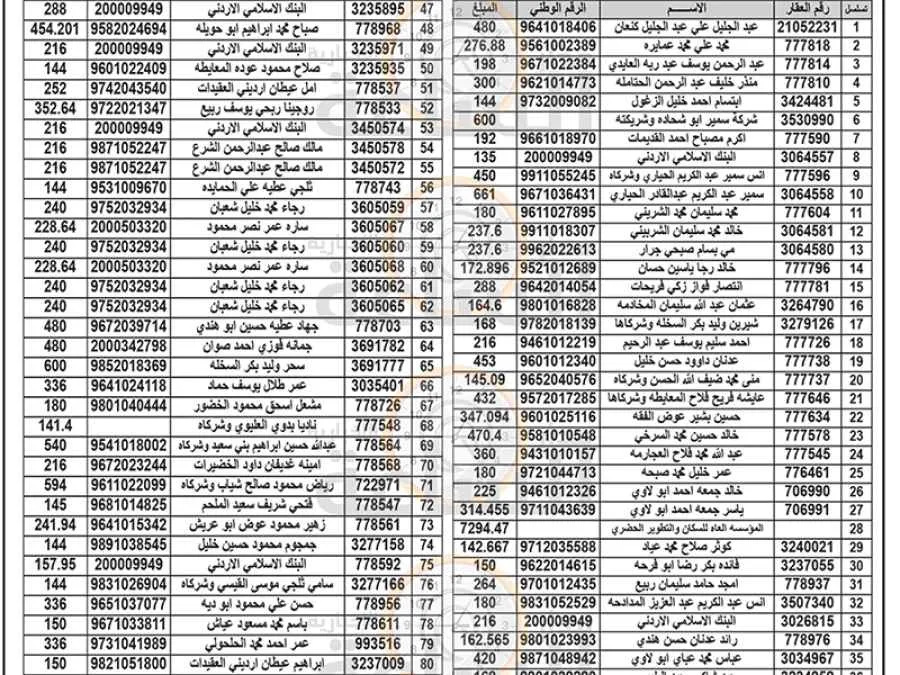 تسلسل رقم العقار الاســـــم الرقم الوطني المبلغ
1 21052231 عبد الجليل علي عبد الجليل كنعان 9641018406 480
2 777818 محمد علي محمد عمايره 9561002389 276.88
3 777814 عبد الرحمن يوسف عبد ربه العابدي 9671022384 198
4 777810 منذر خليف عبد الرحمن الختامله 9621014773 300
5 3424481 ابتسام احمد خليل الزغول 9732009082 144
6 3530990 شركة سمير ابو شحاده وشريكته 600
7 777590 اكرم مصباح احمد القديمات 9661018970 192
8 3064557 البنك الاسلامي الاردني 200009949 135
9 777596 انس سمير عبد الكريم الحياري وشركاه 9911055245 450
10 3064558 سمير عبد الكريم عبدالقادر الحياري 9671036431 661
11 777604 محمد سليمان محمد الشربني 9611027895 180
12 3064581 خالد محمد سليمان الشربيني 9911018307 237.6
13 3064580 مي بسام صبحي جرار 9962022613 237.6
14 777796 خالد رجا ياسين حسان 9521012689 172.896
15 777781 انتصار فواز زكي فريحات 9642014054 288
16 3264790 عثمان عبد الله سليمان المخادمه 9801016828 164.6
17 3279126 شيرين وليد بكر السخله وشركاها 9782018139 168
18 777726 احمد سليم يوسف عبد الرحيم 9461012219 216
19 777738 عدنان داوود حسن خليل 9601012340 453
20 777737 منى محمد ضيف الله الحسن وشركاه 9652040576 145.09
21 777646 عايشه فريح فلاح المعايطه وشركاها 9572017285 432
22 777634 حسين بشير عوض الفقه 9601025116 347.094
23 777578 خالد حسين محمد السرخي 9581010548 470.4
24 777545 عبد الله محمد فلاح العجارمه 9431010157 360
25 776461 عمر خليل محمد صبحه 9721044713 180
26 706990 خالد جمعه احمد ابو لاوي 9461012326 225
27 706991 ياسر جمعه احمد ابو لاوي 9711043639 314.455
28 المؤسسه العامه للسكان والتطوير الحضري 7294.47
29 3240021 كوثر صلاح محمد عياد 9712035588 142.667
30 3237055 فانده بكر رضا ابو فرحه 9622014615 150
31 778937 امجد حامد سليمان ربيع 9701012435 264
32 3507340 انس عبد الكريم عبد العزيز المدادحه 9831052529 180
33 3026815 البنك الاسلامي الاردني 200009949 216
34 778976 رائد عدنان حسن هندي 9801023993 162.565
35 3034967 عباس محمد عباي ابو لاوي 9871048942 420
47 3235895 البنك الاسلامي الاردني 200009949 288
48 778968 صباح محمد ابراهيم ابو حويله 9582024694 454.201
49 3235971 البنك الاسلامي الاردني 200009949 216
50 3235935 صلاح محمود عوده المعايطه 9601022409 144
51 778537 امل عيطان ارديني العقيدات 9742043540 252
52 778533 روجينا ربحي يوسف ربيع 9722021347 352.64
53 3450574 البنك الاسلامي الاردني 200009949 216
54 3450578 مالك صالح عبدالرحمن الشرع 9871052247 216
55 3450572 مالك صالح عبدالرحمن الشرع 9871052247 216
56 778743 ثلجي عطيه علي الحمايده 9531009670 144
57 3605059 رجاء محمد خليل شعبان 9752032934 240
58 3605067 ساره عمر نصر محمود 2000503320 228.64
59 3605060 رجاء محمد خليل شعبان 9752032934 240
60 3605068 ساره عمر نصر محمود 2000503320 228.64
61 3605062 رجاء محمد خليل شعبان 9752032934 240
62 3605065 رجاء محمد خليل شعبان 9752032934 240
63 778703 جهاد عطيه حسين ابو هندي 9672039714 480
64 3691782 جمانه فوزي احمد صوان 2000342798 480
65 3691777 سحر وليد بكر السخله 9852018369 600
66 3035401 عمر طلال يوسف حماد 9641024118 336
67 778726 مشعل اسحق محمود الخضور 9801040444 180
68 777548 ناديا بدوي العليوي وشركاه 141.4
69 778564 عبدالله حسين ابراهيم بني سعيد وشركاه 9541018002 540
70 778568 امينه غديفان داود الخضيرات 9672023244 216
71 722971 رياض محمود صالح شياب وشركاه 9611022099 594
72 778547 فتحي شريف سعيد الملحم 9681014825 145
73 778561 زهير محمود عوض ابو عريش 9641015342 241.94
74 3277158 جمجوم محمود حسين خليل 9891038545 144
75 778592 البنك الاسلامي الاردني 200009949 157.95
76 3277166 سامي ثلجي موسى القيسي وشركاه 9831026904 144
77 778956 حسن علي محمود ابو ديه 9651037077 336
78 778611 باسم محمد مسعود عياش 9671033811 150
79 993516 عمر احمد محمد الحلحولي 9731041989 336
80 3237009 ابراهيم عيطان ارديني العقيدات 9821051800 150